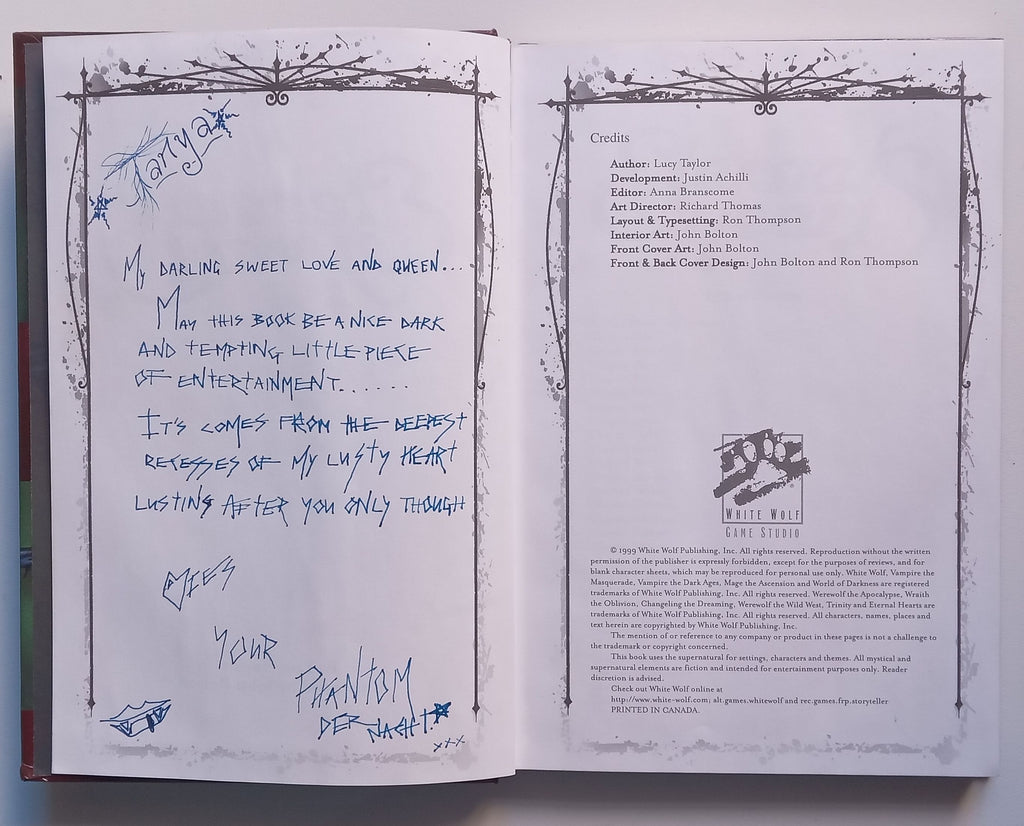 Tanya
My DARLING SWEET LOVE AND QUEEN...
MAY THIS BOOK BE A NICE DARK
AND TEMPTING LITTLE PIECE
OF ENTERTAINMENT......
IT'S COMES FROM THE DEEPEST
RECESSES OF MY LUSTY HEART
LUSTING AFTER YOU ONLY THOUGH
YOUR
PHANTOM
DER NACHT!
xxx
Credits
Author: Lucy Taylor
Development: Justin Achilli
Editor: Anna Branscome
Art Director: Richard Thomas
Layout & Typesetting: Ron Thompson
Interior Art: John Bolton
Front Cover Art: John Bolton
Front & Back Cover Design: John Bolton and Ron Thompson
WHITE WOLF
GAME STUDIO
© 1999 White Wolf Publishing, Inc. All rights reserved. Reproduction without the written
permission of the publisher is expressly forbidden, except for the purposes of reviews, and for
blank character sheets, which may be reproduced for personal use only. White Wolf, Vampire the
Masquerade, Vampire the Dark Ages, Mage the Ascension and World of Darkness are registered
trademarks of White Wolf Publishing, Inc. All rights reserved. Werewolf the Apocalypse, Wraith
the Oblivion, Changeling the Dreaming, Werewolf the Wild West, Trinity and Eternal Hearts are
trademarks of White Wolf Publishing, Inc. All rights reserved. All characters, names, places and
text herein are copyrighted by White Wolf Publishing, Inc.
The mention of or reference to any company or product in these pages is not a challenge to
the trademark or copyright concerned.
This book uses the supernatural for settings, characters and themes. All mystical and
supernatural elements are fiction and intended for entertainment purposes only. Reader
discretion is advised.
Check out White Wolf online at
http://www.white-wolf.com; alt.games.whitewolf and rec.games.frp.storyteller
PRINTED IN CANADA.